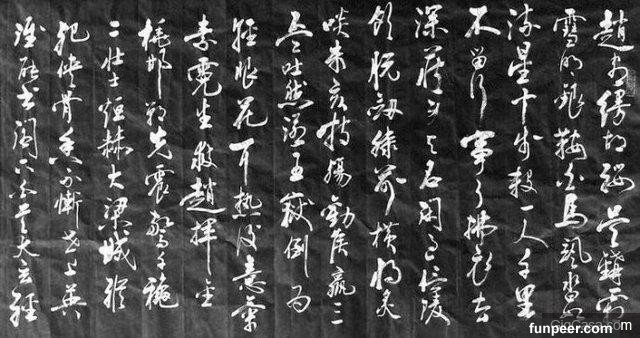 趙客縵胡纓吳鉤霜
雪明銀鞍白馬颯沓如
流星十步殺一人千里
不留行事了拂衣去
深藏身與名閑過信陵
飲脫劍膝前橫將炙
啖朱亥持觴勸侯嬴三
杯吐然諾五嶽倒為
輕眼花耳熱後意氣
素霓生救趙揮金
槌邯鄲先震驚千穐
二壯士烜赫大梁城縱
死俠骨香不慚世上英
誰能書閣下白首太玄經
funpeer.com